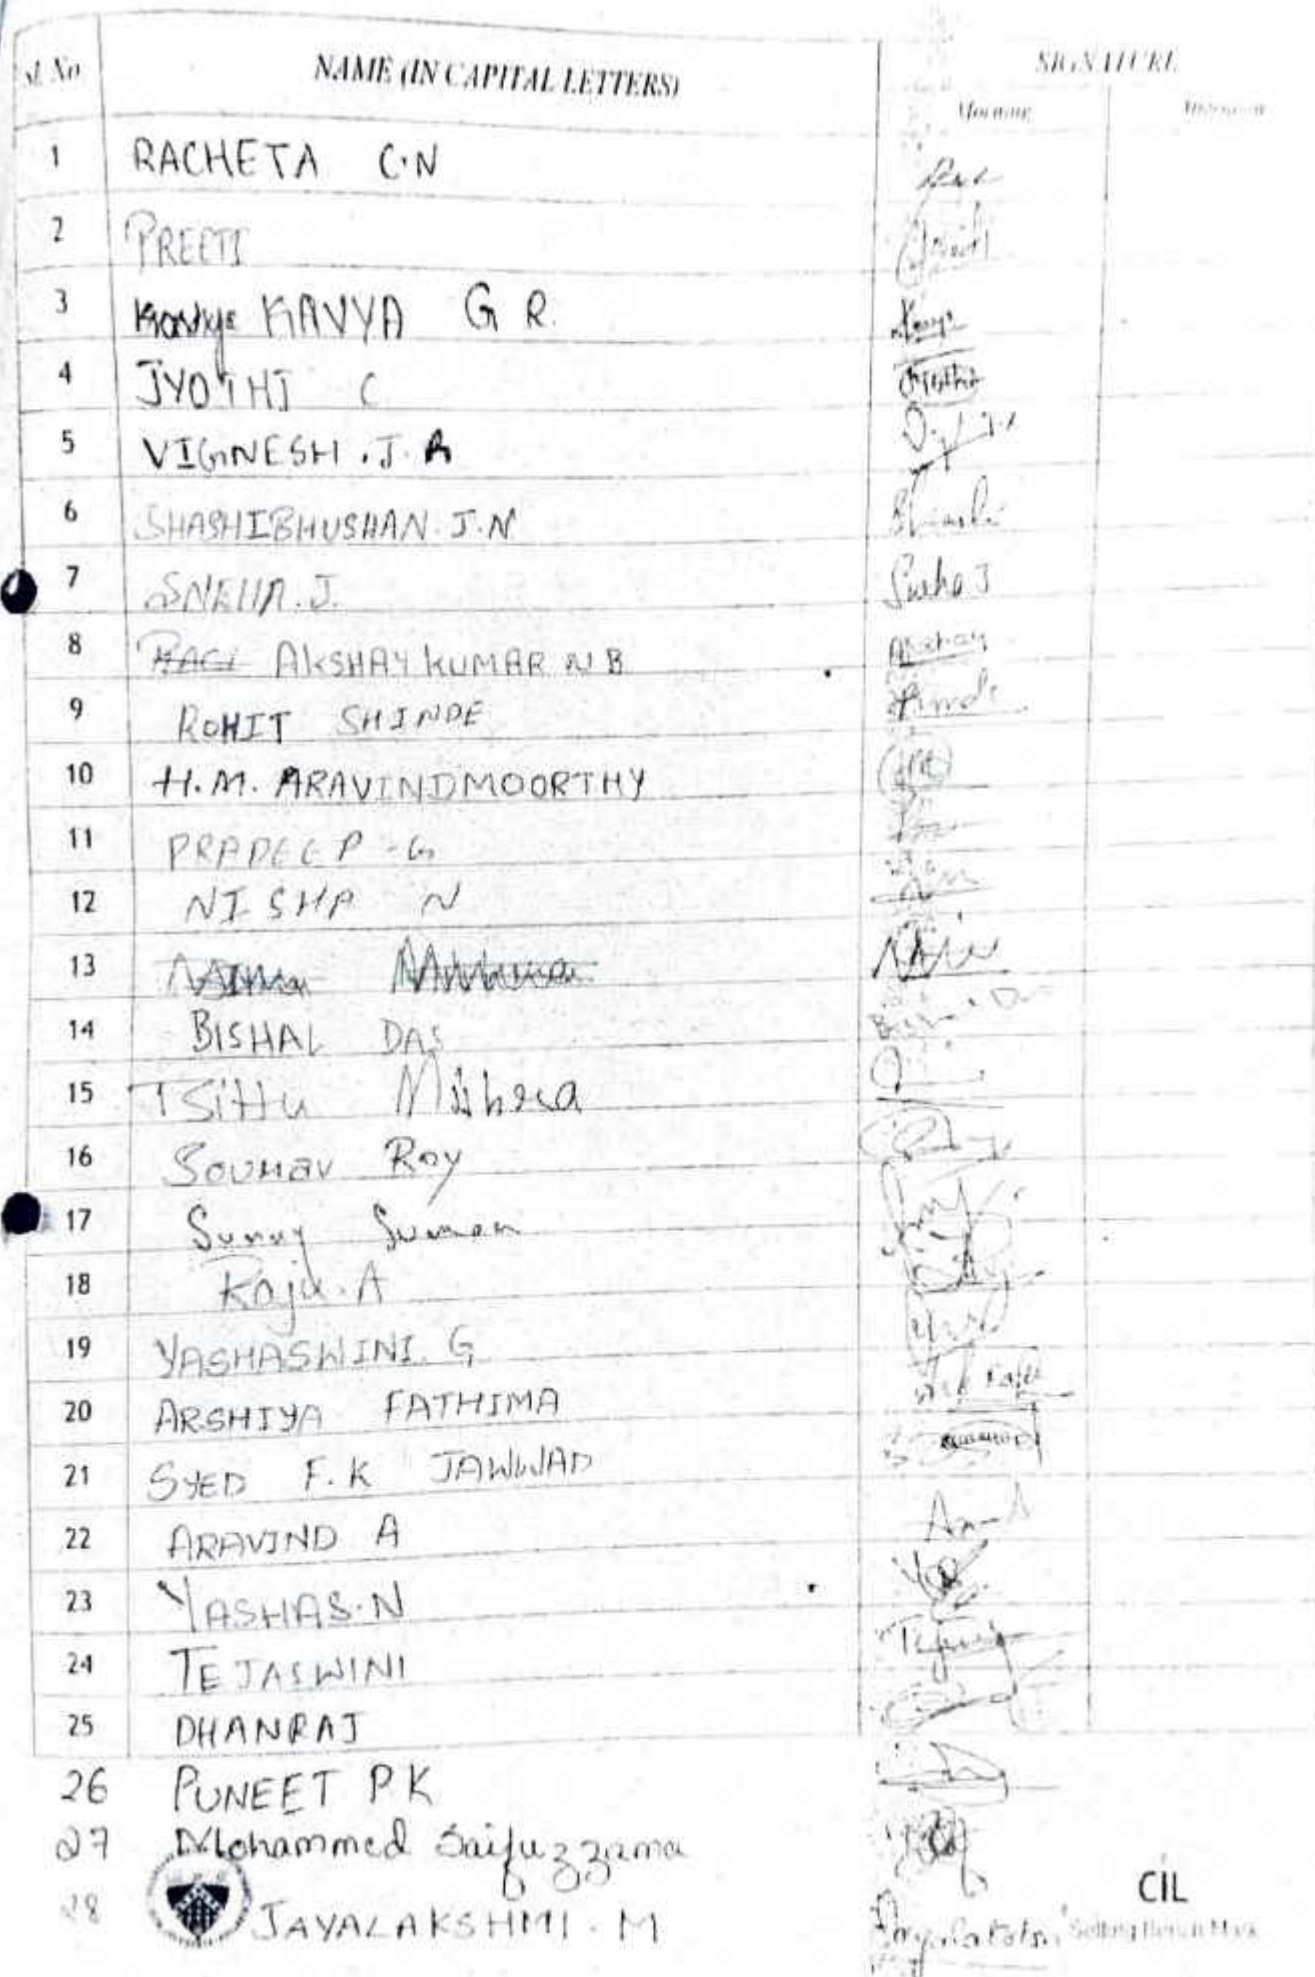 Sl. No NAME (IN CAPITAL LETTERS) SIGNATURE
Morning Afternoon
1 RACHETA C.N
2 PREETI Preeti
3 Kavya KAVYA G R. Kavya
4 JYOTHI C Jyothi
5 VIGNESH . J. R
6 SHASHIBHUSHAN. J. N
7 SNEHA. J. Sneha J
8 RAGI AKSHAY KUMAR N B Akshay
9 ROHIT SHINDE
10 H.M. ARAVINDMOORTHY
11 PRADEEP - G
12 NISHA N
13
14 BISHAL DAS
15 TSittu Mishra
16 Sourav Roy
17 Sunny Suman
18 Raju. A
19 YASHASWINI. G
20 ARSHIYA FATHIMA
21 SYED F.K JAWWAD
22 ARAVIND A
23 YASHAS. N
24 TEJASWINI
25 DHANRAJ
26 PUNEET P K
27 Mohammed Saifuzzama
28 JAYALAKSHMI . M
CIL
Setting Bench Mark